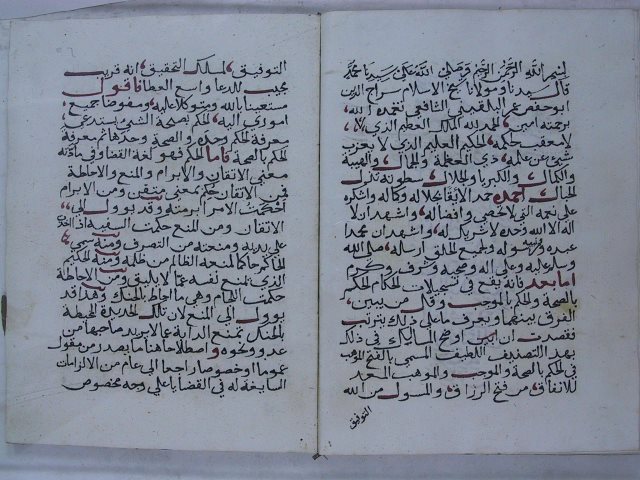 بسم الله الرحمن الرحيم وصلى الله على سيدنا محمد
قال سيدنا ومولانا شيخ الاسلام سراج الدين
ابو حفص عمر البلقيني الشافعي تغمده الله
برحمته امين الحمد لله الملك العظيم الذي
لا معقب لحكمه الحكيم العليم الذي لا يعزب
شيء عن علمه ذي العظمة والجمال والهيبة
والكمال والكبريا والجلال سطوته تدك
الجبال احمده حمد الايقا بجلاله وكماله واشكره
على نعمه التي لا تحصى وافضاله واشهد ان لا
اله الا الله وحده لا شريك له واشهد ان محمدا
عبده ورسوله ولجميع الخلق ارسله صلى الله
وسلم عليه وعلى اله وصحبه وشرف وكرم
اما بعد فانه يقع في تسجيلات الحكام الحكم
بالصحة والحكم بالموجب وقل من يبين
الفرق بينهما ويعرف ما على ذلك يترتب
فقصدت ان ابين اوضح المسالك في ذلك
بهذا التصنيف اللطيف المسمى بالفتح الموهب
في الحكم بالصحة والموجب والموهب المعد
للانفاق من فتح الرزاق والمسول من الله
التوفيق
التوفيق لمسلك التحقيق انه قريب
مجيب للدعا واسع العطا فاقول
مستعينا بالله ومتوكلا عليه ومفوضا جميع
اموري اليه الحكم بصحة الشي يستدعي
معرفة الحكم وحده والصحة وحدها ثم معرفة
الحكم بالصحة فاما الحكم فهو لغة القضا وفي مادته
معنى الاتقان والابرام والمنع والاحاطة
فمن الاتقان حكم بمعنى متقن ومن الابرام
احكمت الامر ابرمته وقد يوول الى
الاتقان ومن المنع حكمت السفيه اذا اخذت
على يديه ومنعته من التصرف ومنه سمي
الحاكم حاكما لمنعه الظالم من ظلمه ومنه الحكيم
الذي يمنع نفسه عما لا يليق ومن الاحاطة
حكمت اللجام وهي ما احاط بالحنك وهذا قد
يوول الى المنع لان تلك الحديدة المحيطة
بالحنك تمنع الدابة عما لا يريد صاحبها من
عدو ونحوه واصطلاحا هنا ما يصدر من مقول
عموما او خصوصا راجعا الى عام من الالزامات
السايغة له في القضايا على وجه مخصوص